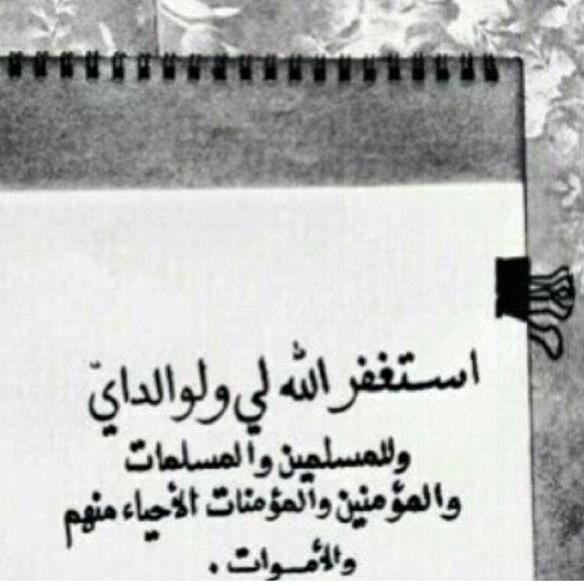 استغفر الله لي ولوالدايّ
وللمسلمين والمسلمات
والمؤمنين والمؤمنات الأحياء منهم
والأموات .